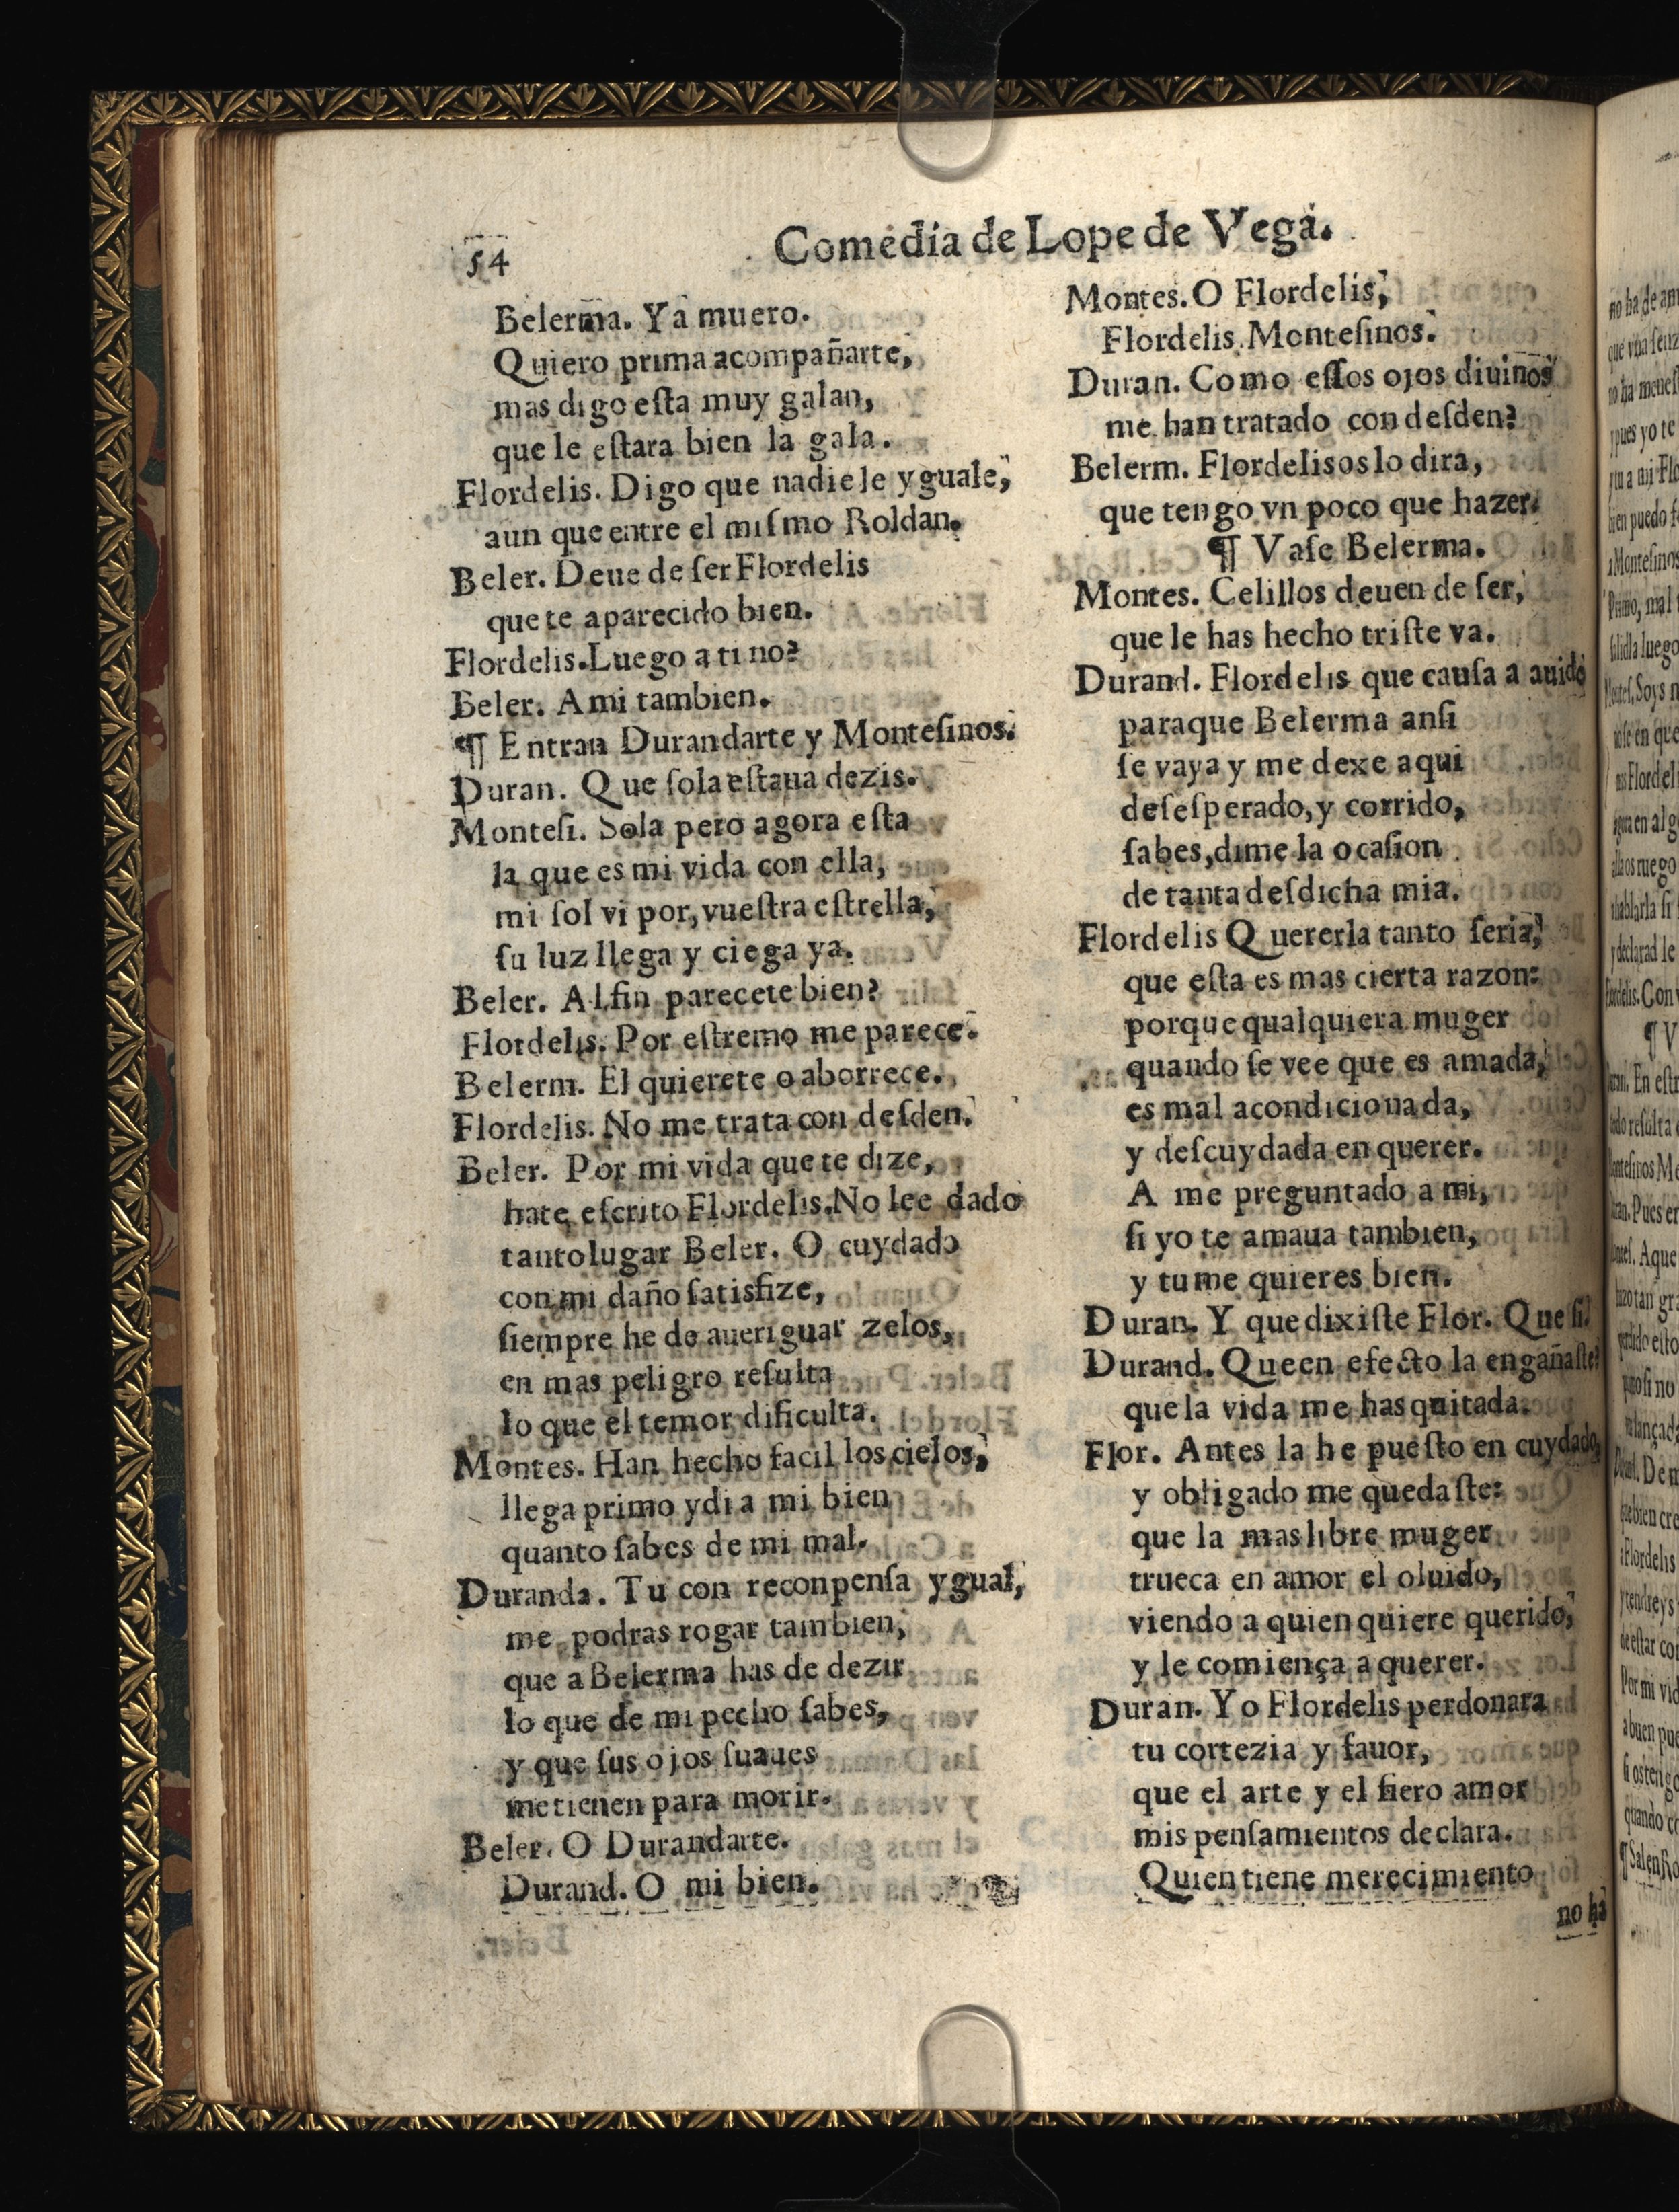 54
Comedia de Lope de Vega.
Belerma. Ya muero.
Quiero prima acompañarte,
mas digo eſta muy galan,
que le eſtara bien la gala.
Flordelis. Digo que nadie le yguale,
aun que entre el miſmo Roldan.
Beler. Deue de ſer Flordelis
que te aparecido bien.
Flordelis. Luego a ti no?
Beler. A mi tambien.
¶ Entran Durandarte y Monteſinos.
Duran. Que ſola eſtaua dezis.
Monteſi. Sola pero agora eſta
la que es mi vida con ella,
mi ſol vi por, vueſtra eſtrella,
ſu luz llega y ciega ya.
Beler. Al fin parecete bien?
Flordelis. Por eſtremo me parece.
Belerm. El quierete o aborrece.
Flordelis. No me trata con deſden.
Beler. Por mi vida que te dize,
hate eſcrito Flordelis. No lee dado
tanto lugar Beler. O cuydado
con mi daño ſatisfize,
ſiempre he de aueriguar zelos,
en mas peligro reſulta
lo que el temor dificulta.
Montes. Han hecho facil los cielos,
llega primo y di a mi bien
quanto ſabes de mi mal.
Duranda. Tu con reconpenſa ygual,
me podras rogar tambien,
que a Belerma has de dezir
lo que de mi pecho ſabes,
y que ſus ojos ſuaues
me tienen para morir.
Beler. O Durandarte.
Durand. O mi bien.
Montes. O Flordelis,
Flordelis. Monteſinos.
Duran. Como eſſos ojos diuinos
me han tratado con deſden?
Belerm. Flordelis os lo dira,
que tengo vn poco que hazer.
¶ Vaſe Belerma.
Montes. Celillos deuen de ſer,
que le has hecho triſte va.
Durand. Flordelis que cauſa a auido
paraque Belerma anſi
ſe vaya y me dexe aqui
deſeſperado, y corrido,
ſabes, dime la ocaſion
de tanta deſdicha mia.
Flordelis Quererla tanto ſeria,
que eſta es mas cierta razon:
porque qualquiera muger
quando ſe vee que es amada,
es mal acondicionada,
y deſcuydada en querer.
A me preguntado a mi,
ſi yo te amaua tambien,
y tu me quieres bien.
Duran. Y que dixiſte Flor. Que ſi.
Durand. Que en efecto la engañaſte?
que la vida me has quitada.
Flor. Antes la he pueſto en cuydado,
y obligado me quedaſte:
que la mas libre muger
trueca en amor el oluido,
viendo a quien quiere querido,
y le comiença a querer.
Duran. Yo Flordelis perdonara
tu cortezia y fauor,
que el arte y el fiero amor
mis penſamientos declara.
Quien tiene merecimiento
no ha